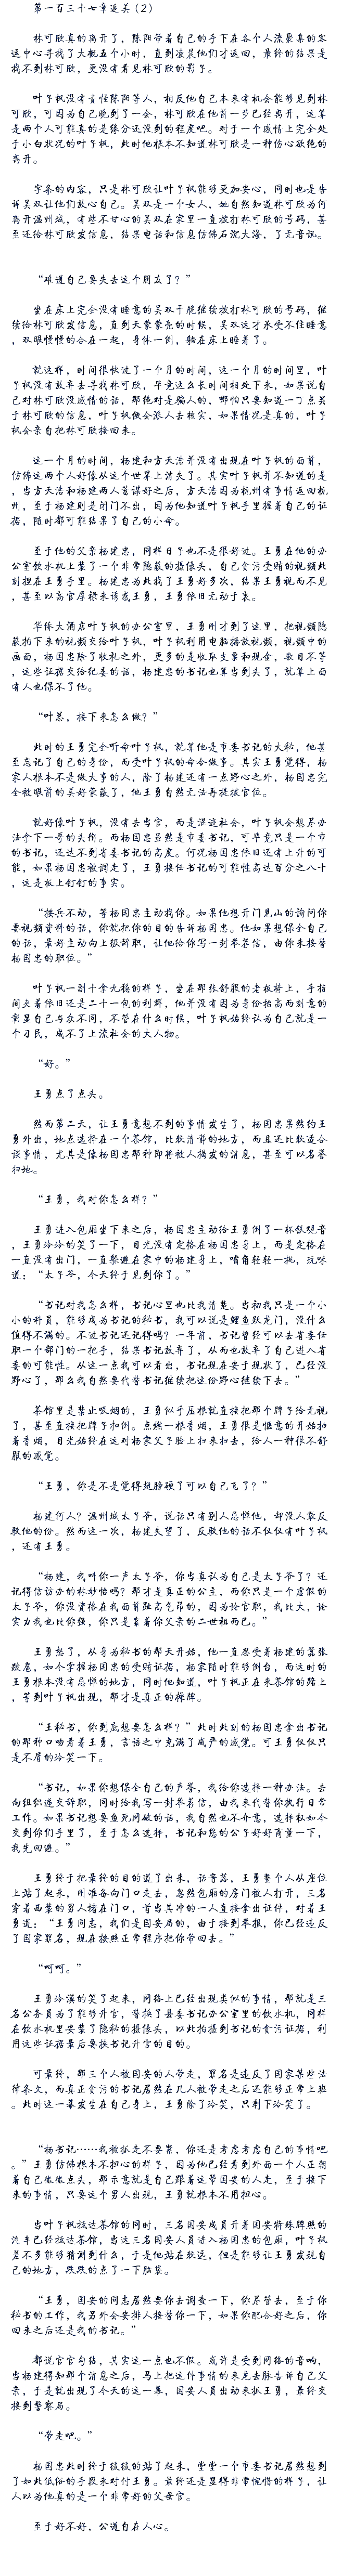 第一百三十七章追美（2）
林可欣真的离开了，陈阳带着自己的手下在各个人流聚集的客
运中心寻找了大概五个小时，直到凌晨他们才返回，最终的结果是
找不到林可欣，更没有看见林可欣的影子。
叶子枫没有责怪陈阳等人，相反他自己本来有机会能够见到林
可欣，可因为自己晚到了一会，林可欣在他前一步已经离开，这算
是两个人可能真的是缘分还没到的程度吧。对于一个感情上完全处
于小白状况的叶子枫，此时他根本不知道林可欣是一种伤心欲绝的
离开。
字条的内容，只是林可欣让叶子枫能够更加安心，同时也是告
诉吴双让他们放心自己。吴双是一个女人，她自然知道林可欣为何
离开温州城，有些不甘心的吴双在家里一直拨打林可欣的号码，甚
至还给林可欣发信息，结果电话和信息仿佛石沉大海，了无音讯。
“难道自己要失去这个朋友了？”
坐在床上完全没有睡意的吴双干脆继续拨打林可欣的号码，继
续给林可欣发信息，直到天蒙蒙亮的时候，吴双这才承受不住睡意
，双眼慢慢的合在一起，身体一倒，躺在床上睡着了。
就这样，时间很快过了一个月的时间，这一个月的时间里，叶
子枫没有放弃去寻找林可欣，毕竟这么长时间相处下来，如果说自
己对林可欣没感情的话，那绝对是骗人的，哪怕只要知道一丁点关
于林可欣的信息，叶子枫便会派人去核实，如果情况是真的，叶子
枫会亲自把林可欣接回来。
这一个月的时间，杨建和方天浩并没有出现在叶子枫的面前，
仿佛这两个人好像从这个世界上消失了。其实叶子枫并不知道的是
，当方天浩和杨建两人首谋好之后，方天浩因为杭州有事情返回杭
州，至于杨建则是闭门不出，因为他知道叶子枫手里握着自己的证
据，随时都可能结果了自己的小命。
至于他的父亲杨建忠，同样日子也不是很好过。王勇在他的办
公室饮水机上装了一个非常隐蔽的摄像头，自己贪污受贿的视频此
刻捏在王勇手里。杨建忠为此找了王勇好多次，结果王勇视而不见
，甚至以高官厚禄来诱惑王勇，王勇依旧无动于衷。
华侨大酒店叶子枫的办公室里，王勇刚才到了这里，把视频隐
蔽拍下来的视频交给叶子枫，叶子枫利用电脑播放视频，视频中的
画面，杨国忠除了收礼之外，更多的是收取支票和现金，数目不等
，这些证据交给纪委的话，杨建忠的书记也算当到头了，就算上面
有人也保不了他。
“叶总，接下来怎么做？”
此时的王勇完全听命叶子枫，就算他是市委书记的大秘，他甚
至忘记了自己的身份，而受叶子枫的命令做事。其实王勇觉得，杨
家人根本不是做大事的人，除了杨建还有一点野心之外，杨国忠完
全被眼前的美好蒙蔽了，他王勇自然无法再提拔官位。
就好像叶子枫，没有去当官，而是混迹社会，叶子枫会想尽办
法拿下一哥的头衔。而杨国忠虽然是市委书记，可毕竟只是一个市
的书记，还达不到省委书记的高度。何况杨国忠依旧还有上升的可
能，如果杨国忠被调走了，王勇接任书记的可能性高达百分之八十
，这是板上钉钉的事实。
“按兵不动，等杨国忠主动找你。如果他想开门见山的询问你
要视频资料的话，你就把你的目的告诉杨国忠。他如果想保全自己
的话，最好主动向上级辞职，让他给你写一封举荐信，由你来接替
杨国忠的职位。”
叶子枫一副十拿九稳的样子，坐在那张舒服的老板椅上，手指
间夹着依旧还是二十一包的利群，他并没有因为身份抬高而刻意的
彰显自己与众不同，不管在什么时候，叶子枫始终认为自己就是一
个刁民，成不了上流社会的大人物。
“好。”
王勇点了点头。
然而第二天，让王勇意想不到的事情发生了，杨国忠果然约王
勇外出，地点选择在一个茶馆，比较清静的地方，而且还比较适合
谈事情，尤其是像杨国忠那种即将被人揭发的消息，甚至可以名誉
扫地。
“王勇，我对你怎么样？”
王勇进入包厢坐下来之后，杨国忠主动给王勇倒了一杯铁观音
，王勇冷冷的笑了一下，目光没有定格在杨国忠身上，而是定格在
一直没有出门，一直躲避在家中的杨建身上，嘴角轻轻一挑，玩味
道：“太子爷，今天终于见到你了。”
“书记对我怎么样，书记心里也比我清楚。当初我只是一个小
小的科员，能够成为书记的秘书，我可以说是鲤鱼跃龙门，没什么
值得不满的。不过书记还记得吗？一年前，书记曾经可以去省委任
职一个部门的一把手，结果书记放弃了，从而也放弃了自己进入省
委的可能性。从这一点我可以看出，书记现在安于现状了，已经没
野心了，那么我自然要代替书记继续把这份野心继续下去。”
茶馆里是禁止吸烟的，王勇似乎压根就直接把那个牌子给无视
了，甚至直接把牌子扣倒。点燃一根香烟，王勇很是惬意的开始抽
着香烟，目光始终在这对杨家父子脸上扫来扫去，给人一种很不舒
服的感觉。
“王勇，你是不是觉得翅膀硬了可以自己飞了？”
杨建何人？温州城太子爷，说话只有别人忌惮他，却没人敢反
驳他的份。然而这一次，杨建失望了，反驳他的话不仅仅有叶子枫
，还有王勇。
“杨建，我叫你一声太子爷，你当真认为自己是太子爷了？还
记得信访办的林妙怡吗？那才是真正的公主，而你只是一个虚假的
太子爷，你没资格在我面前趾高气昂的，因为论官职，我比大，论
实力我也比你强，你只是靠着你父亲的二世祖而已。”
王勇怒了，从身为秘书的那天开始，他一直忍受着杨建的嚣张
跋扈，如今掌握杨国忠的受贿证据，杨家随时能够倒台，而这时的
王勇根本没有忌惮的地方，同时他知道，叶子枫正在来茶馆的路上
，等到叶子枫出现，那才是真正的摊牌。
“王秘书，你到底想要怎么样？”此时此刻的杨国忠拿出书记
的那种口吻看着王勇，言语之中充满了威严的感觉。可王勇仅仅只
是不屑的冷笑一下。
“书记，如果你想保全自己的声誉，我给你选择一种办法。去
向组织递交辞职，同时给我写一封举荐信，由我来代替你执行日常
工作。如果书记想要鱼死网破的话，我自然也不介意，选择权如今
交到你们手里了，至于怎么选择，书记和您的公子好好商量一下，
我先回避。”
王勇终于把最终的目的道了出来，话音落，王勇整个人从座位
上站了起来，刚准备向门口走去，忽然包厢的房门被人打开，三名
穿着西装的男人堵在门口，首当其冲的一人直接拿出证件，对着王
勇道：“王勇同志，我们是国安局的，由于接到举报，你已经违反
了国家罪名，现在按照正常程序把你带回去。”
“呵呵。”
王勇冷漠的笑了起来，网络上已经出现类似的事情，那就是三
名公务员为了能够升官，替换了县委书记办公室里的饮水机，同样
在饮水机里安装了隐秘的摄像头，以此拍摄到书记的贪污证据，利
用这些证据最后要挟书记升官的目的。
可最终，那三个人被国安的人带走，罪名是违反了国家某些法
律条文，而真正贪污的书记居然在几人被带走之后还能够正常上班
。此时这一幕发生在自己身上，王勇除了冷笑，只剩下冷笑了。
“杨书记……我被抓走不要紧，你还是考虑考虑自己的事情吧
。”王勇仿佛根本不担心的样子，因为他已经看到外面一个人正朝
着自己微微点头，那示意就是自己跟着这帮国安的人走，至于接下
来的事情，只要这个男人出现，王勇就根本不用担心。
当叶子枫抵达茶馆的同时，三名国安成员开着国安特殊牌照的
汽车已经抵达茶馆，当这三名国安人员进入杨国忠的包厢，叶子枫
差不多能够猜测到什么，于是他站在较远，但是能够让王勇发现自
己的地方，默默的点了一下脑袋。
“王勇，国安的同志居然要你去调查一下，你尽管去，至于你
秘书的工作，我另外会安排人接替你一下，如果你配合好之后，你
回来之后还是我的书记。”
都说官官勾结，其实这一点也不假。或许是受到网络的音响，
当杨建得知那个消息之后，马上把这件事情的来龙去脉告诉自己父
亲，于是就出现了今天的这一幕，国安人员出动来抓王勇，最终交
接到警察局。
“带走吧。”
杨国忠此时终于缓缓的站了起来，堂堂一个市委书记居然想到
了如此低俗的手段来对付王勇。最终还是显得非常惋惜的样子，让
人以为他真的是一个非常好的父母官。
至于好不好，公道自在人心。